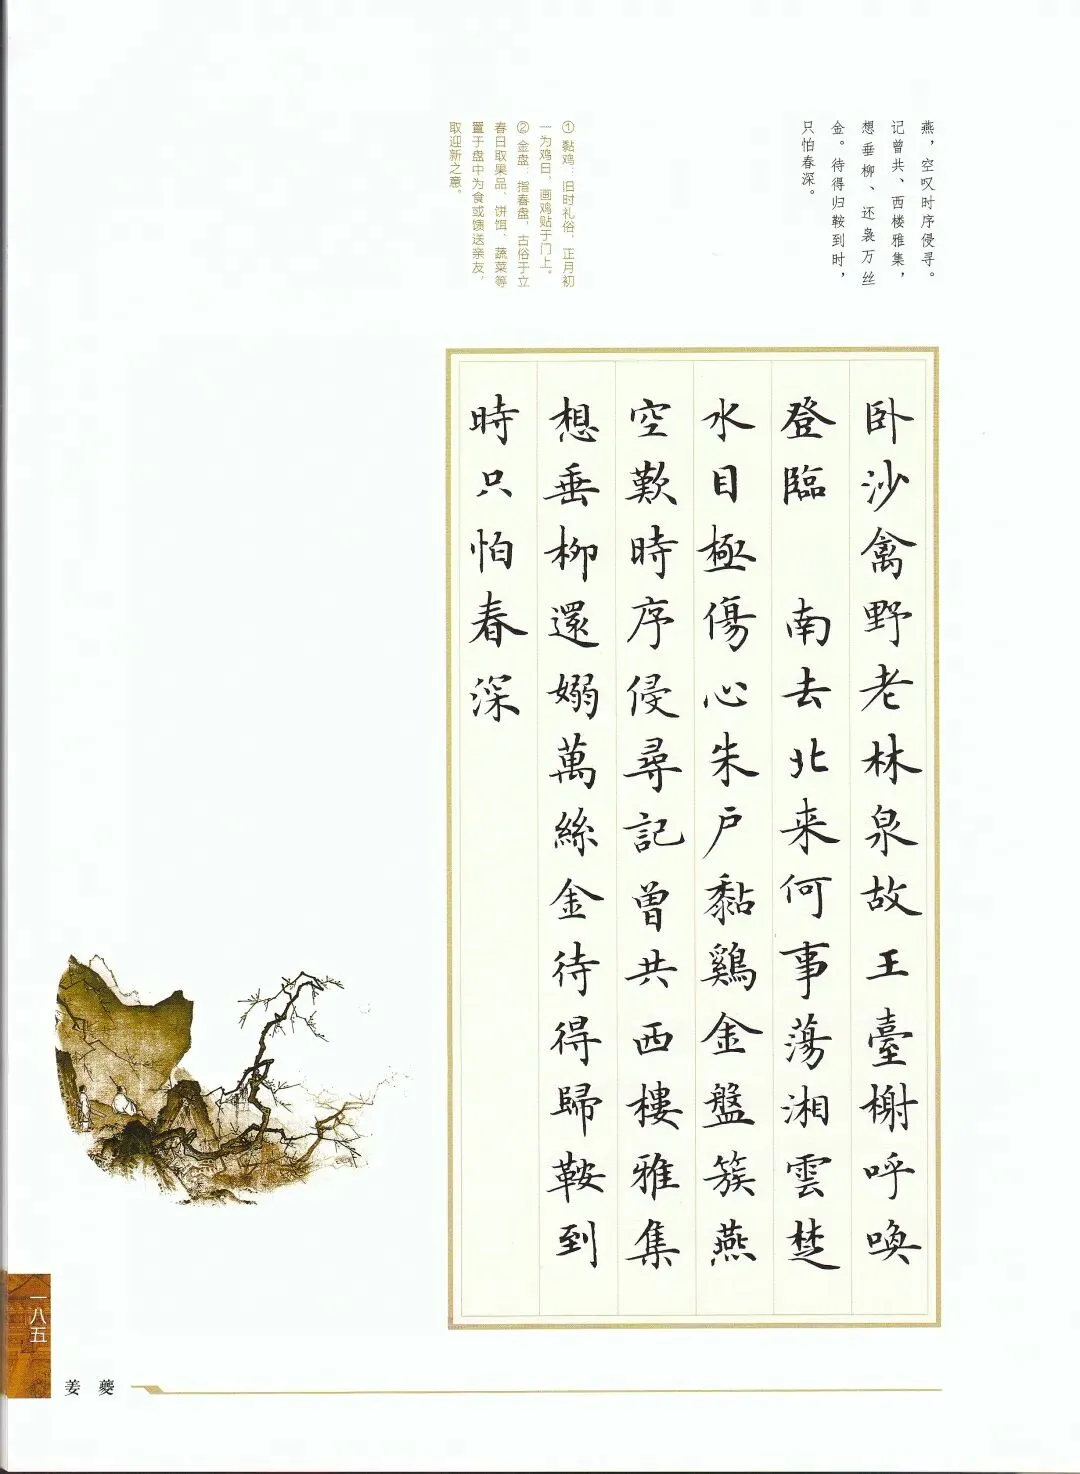 燕，空叹时序侵寻。
记曾共、西楼雅集，
想垂柳、还袅万丝
金。待得归鞍到时，
只怕春深。
① 黏鸡：旧时礼俗，正月初
一为鸡日，画鸡贴于门上。
② 金盘：指春盘，古俗于立
春日取果品、饼饵、蔬菜等
置于盘中为食或馈送亲友，
取迎新之意。
卧沙禽野老林泉故王臺榭呼唤
登臨　南去北来何事蕩湘雲楚
水目極傷心朱户黏鷄金盤簇燕
空歎時序侵尋記曾共西樓雅集
想垂柳還嫋萬絲金待得歸鞍到
時只怕春深
一八五
姜夔